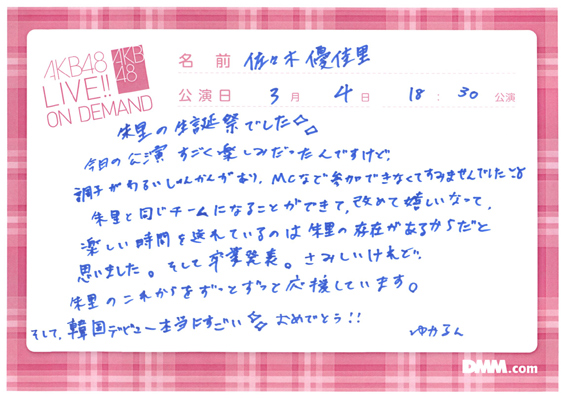 AKB48
LIVE!!
ON DEMAND
AKB
48
名前 佐々木優佳里
公演日 3月 4日 18:30 公演
朱里の生誕祭でした☆
今日の公演すごく楽しみだったんですけど、
調子がわるいしゅんかんがあり、MCなど参加できなくてすみませんでした
朱里と同じチームになることができて、改めて嬉しいなって、
楽しい時間を送れているのは朱里の存在があるからだと
思いました。そして卒業発表。さみしいけれど、
朱里のこれからをずっとずっと応援しています。
そして、韓国デビュー本当にすごい☆ おめでとう!!
ゆかるん
DMM.com